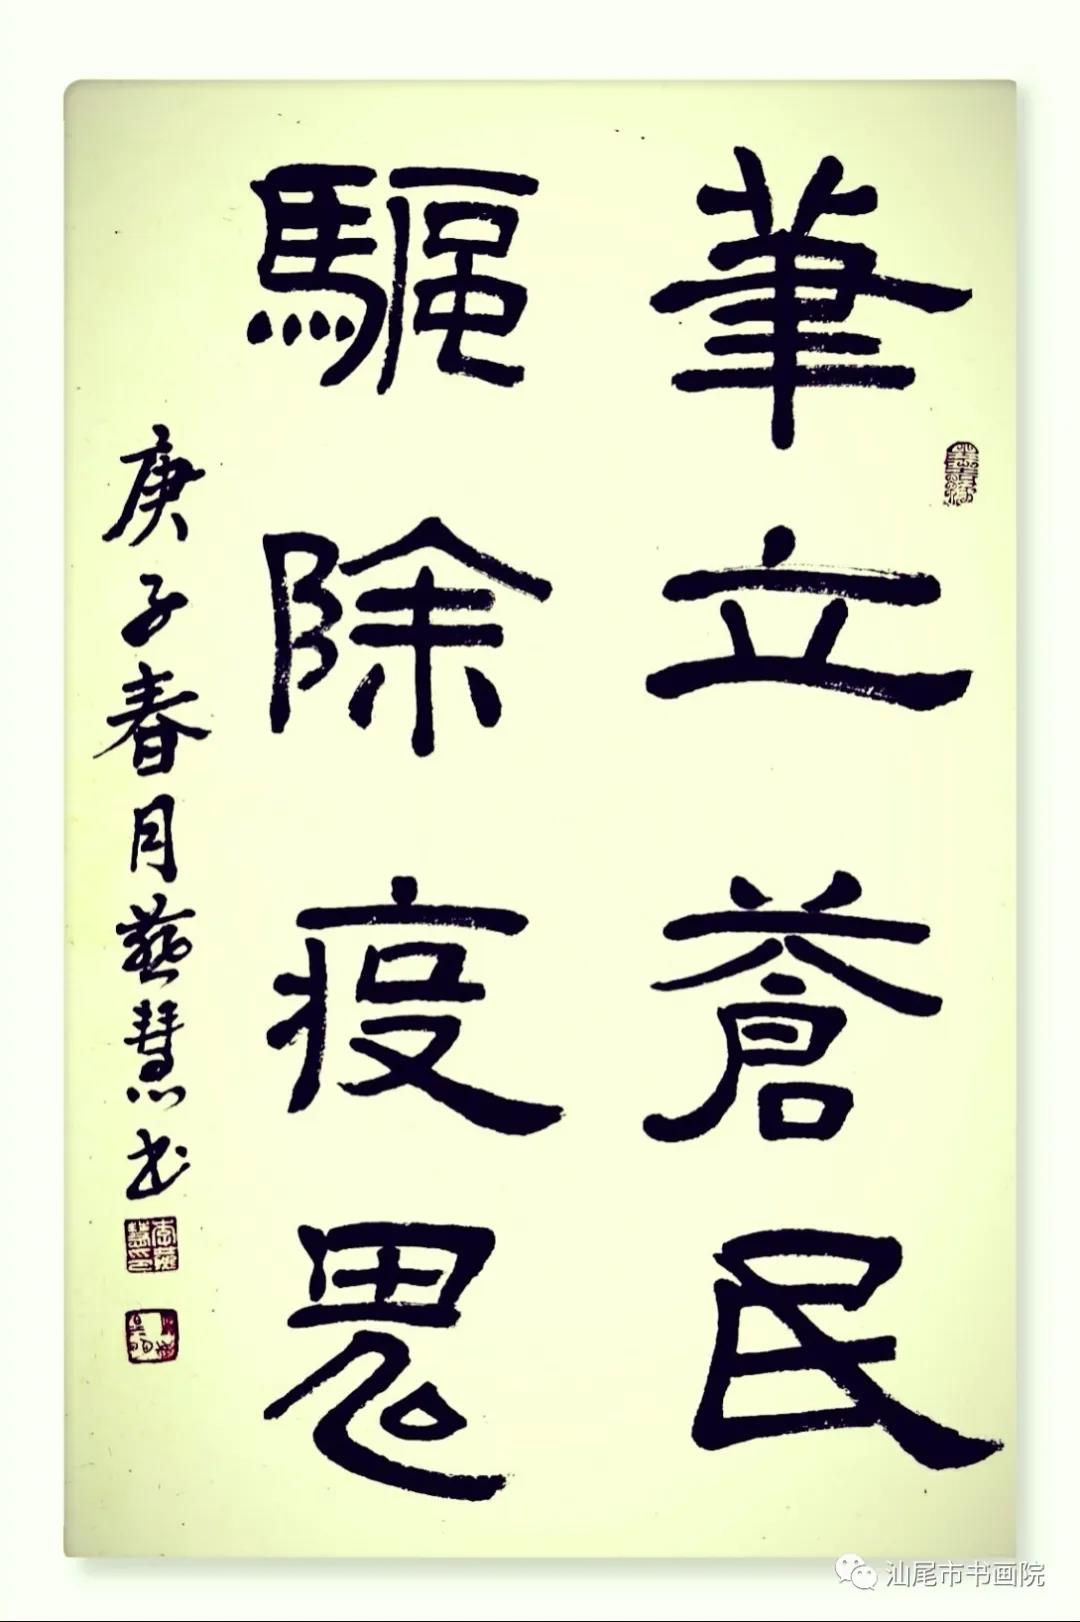 筆立蒼民
驅除疫鬼
庚子春月燕慧书
汕尾市书画院